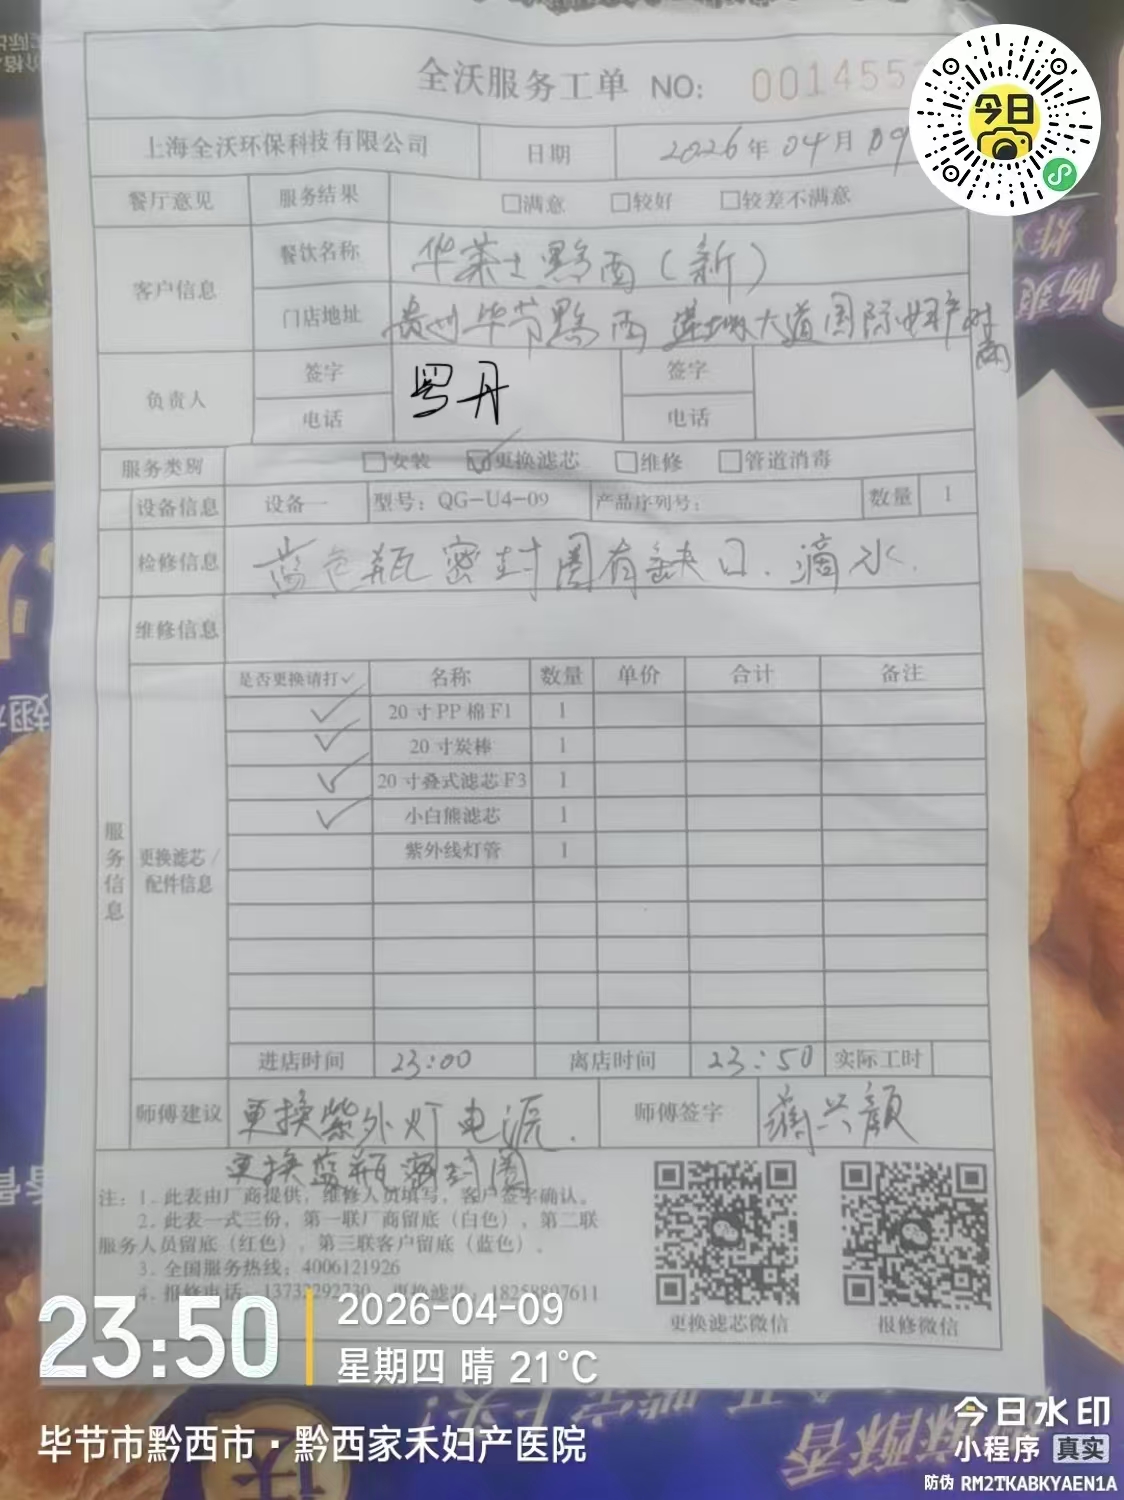 全沃服务工单 NO: 001455
今日
上海全沃环保科技有限公司 日期 2026年04月09
餐厅意见 服务结果 □满意 □较好 □较差不满意
客户信息 餐饮名称 华莱士黔西(新)
门店地址 贵州毕节黔西 大道国际妇产对面
负责人 签字 丹 签字
电话 电话
服务类别 □安装 ☑更换滤芯 □维修 □管道消毒
设备信息 设备一 型号: QG-U4-09 产品序列号: 数量 1
检修信息 蓝色瓶密封圈有缺口.滴水.
维修信息
服务信息
更换滤芯/配件信息
是否更换请打✓ 名称 数量 单价 合计 备注
✓ 20寸PP棉F1 1
✓ 20寸炭棒 1
✓ 20寸叠式滤芯F3 1
✓ 小白熊滤芯 1
紫外线灯管 1
进店时间 23:00 离店时间 23:50 实际工时
师傅建议 更换紫外灯电源. 师傅签字
更换蓝瓶密封圈
注: 1. 此表由厂商提供, 维修人员填写, 客户签字确认。
2. 此表一式三份, 第一联厂商留底(白色), 第二联
服务人员留底(红色), 第三联客户留底(蓝色)。
3. 全国服务热线: 4006121926
4. 报修电话: 更换滤芯:
更换滤芯微信 报修微信
23:50
2026-04-09
星期四 晴 21°C
毕节市黔西市·黔西家禾妇产医院
今日水印
小程序 真实
防伪 RM2TKABKYAEN1A